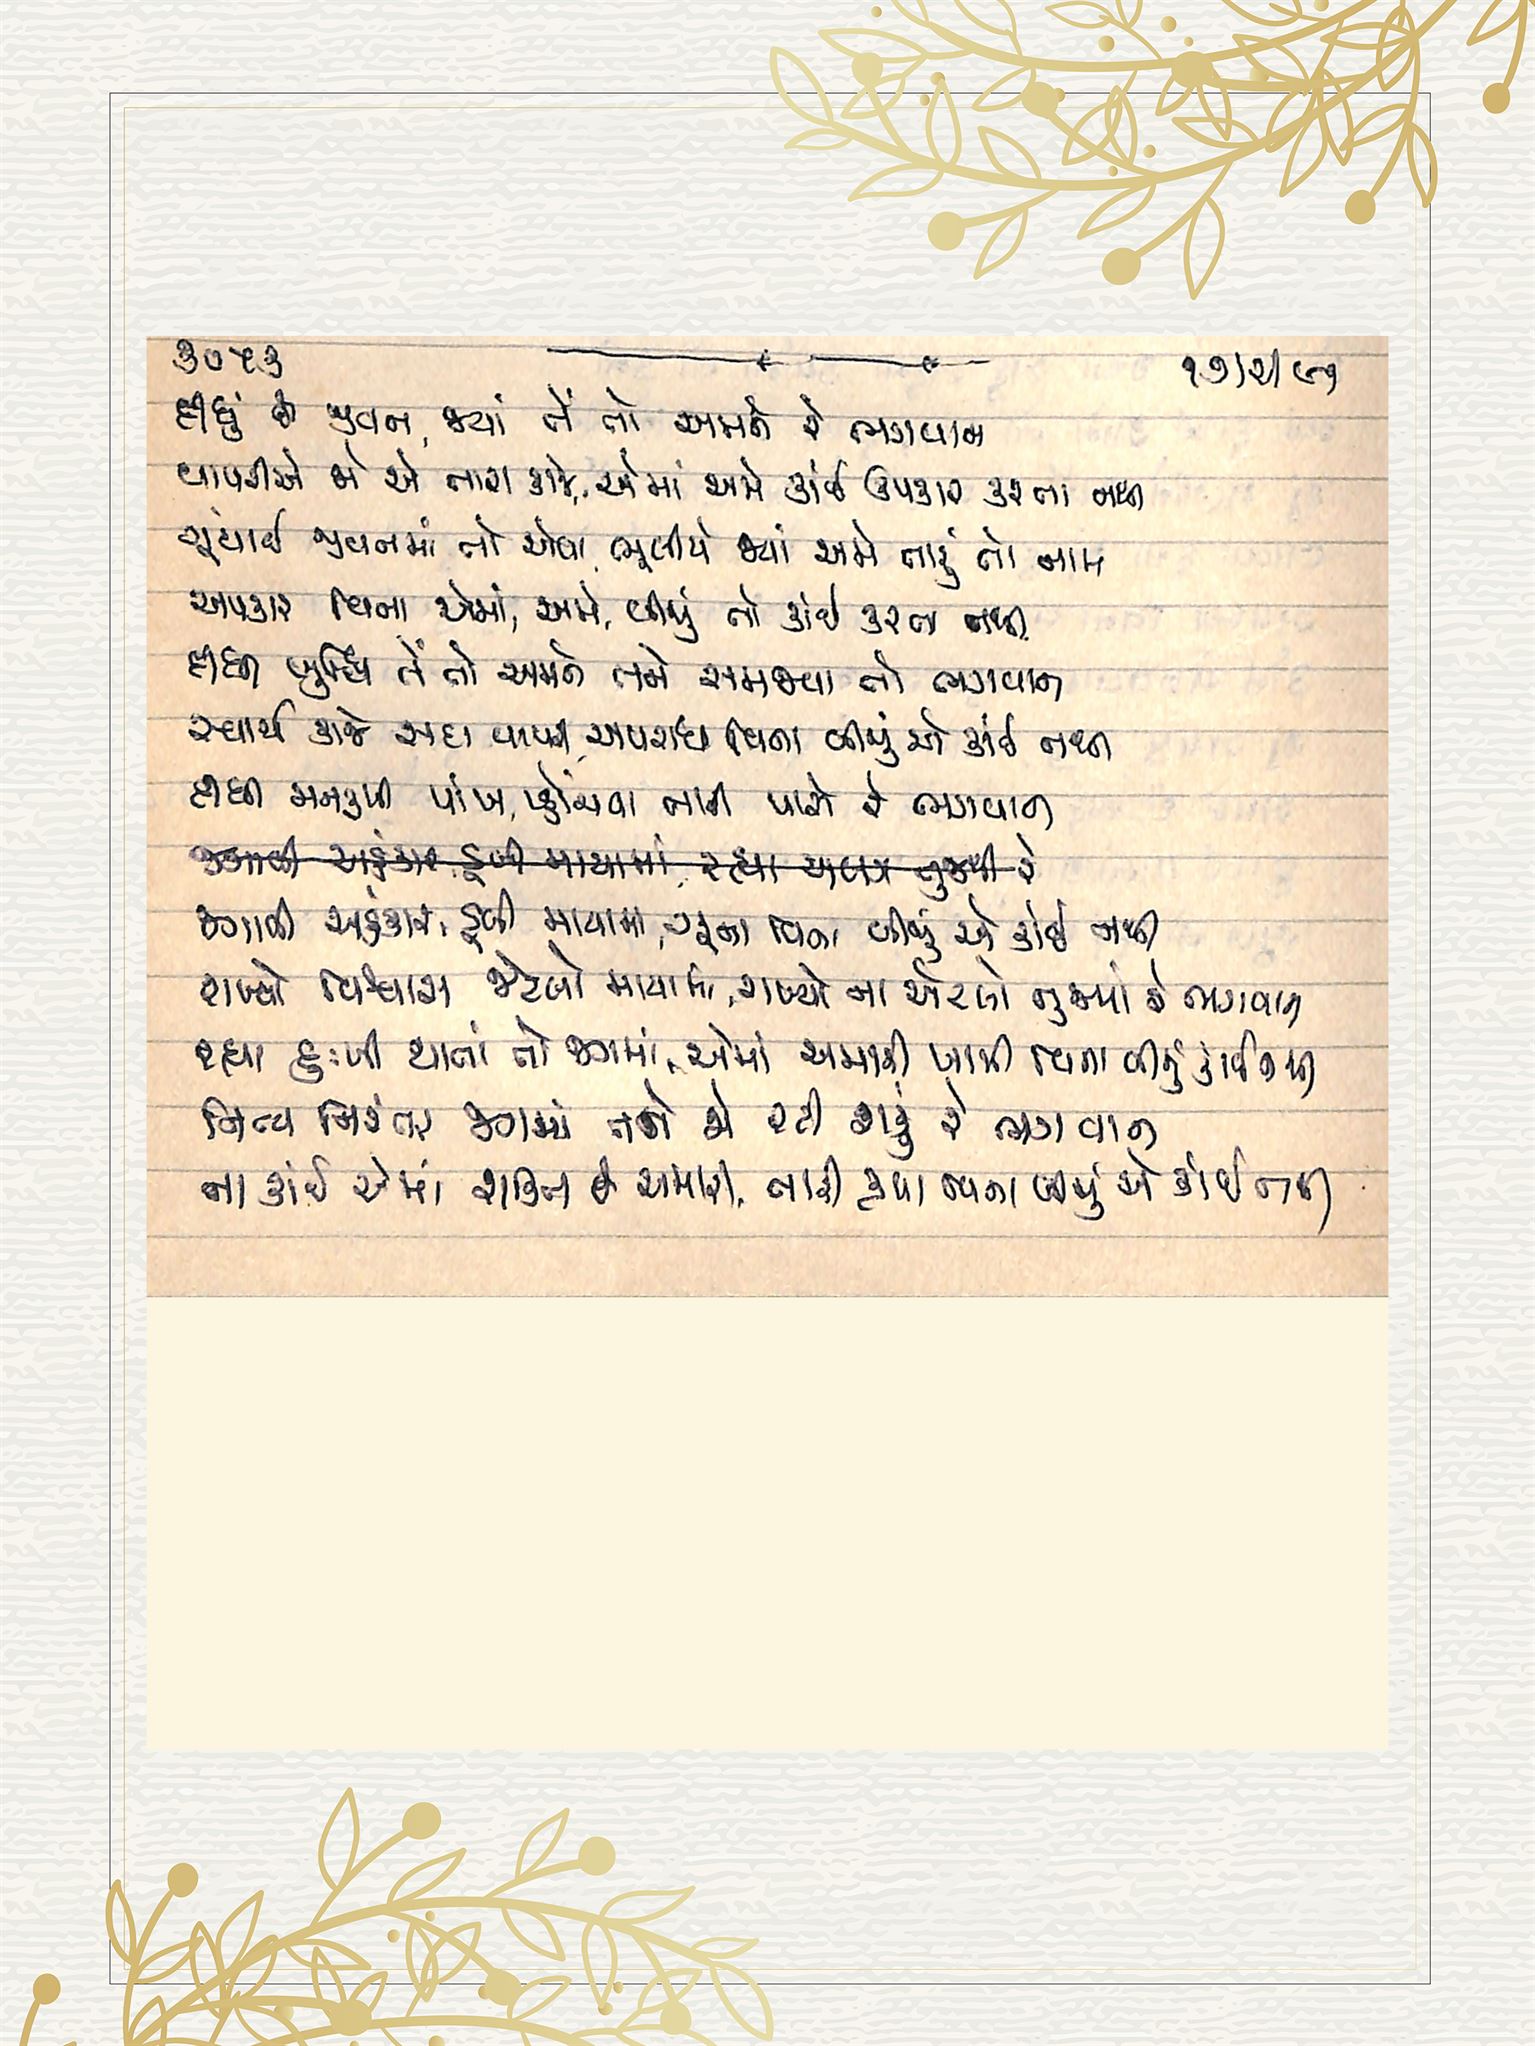 ૩૦૫૩ ૧૭/૨/૯૧
દીધું છે જીવન, જ્યાં તેં તો અમને રે ભગવાન
વાપરીએ જો એ તારા કાજે, એમાં અમે કાંઈ ઉપકાર કરતા નથી
ગૂંથાઈ જીવનમાં તો એવા, ભૂલીયે જ્યાં અમે તારું તો નામ
અપકાર વિના એમાં, અમે, બીજું તો કાંઈ કરતા નથી
દીધી બુદ્ધિ તેં તો અમને તને સમજવા તો ભગવાન
સ્વાર્થ કાજે સદા વાપરી, અપરાધ વિના બીજું એ કાંઈ નથી
દીધી મનરૂપી પાંખ, પ્હોંચવા તારી પાસે રે ભગવાન
જગાવી અહંકાર, ડૂબી માયામાં, રહ્યા અલગ તુજથી રે
જગાવી અહંકાર, ડૂબી માયામાં, ગુના વિના બીજું એ કાંઈ નથી
રાખ્યો વિશ્વાસ જેટલો માયામાં, રાખ્યો ના એટલો તુજમાં રે ભગવાન
રહ્યા દુઃખી થાતાં તો જગમાં, એમાં અમારી ખામી વિના બીજું કાંઈ નથી
નિત્ય નિરંતર જગમાં તને જો રટી શકું રે ભગવાન
ના કાંઈ એમાં શક્તિ છે અમારી, તારી કૃપા વિના બીજું એ કાંઈ નથી